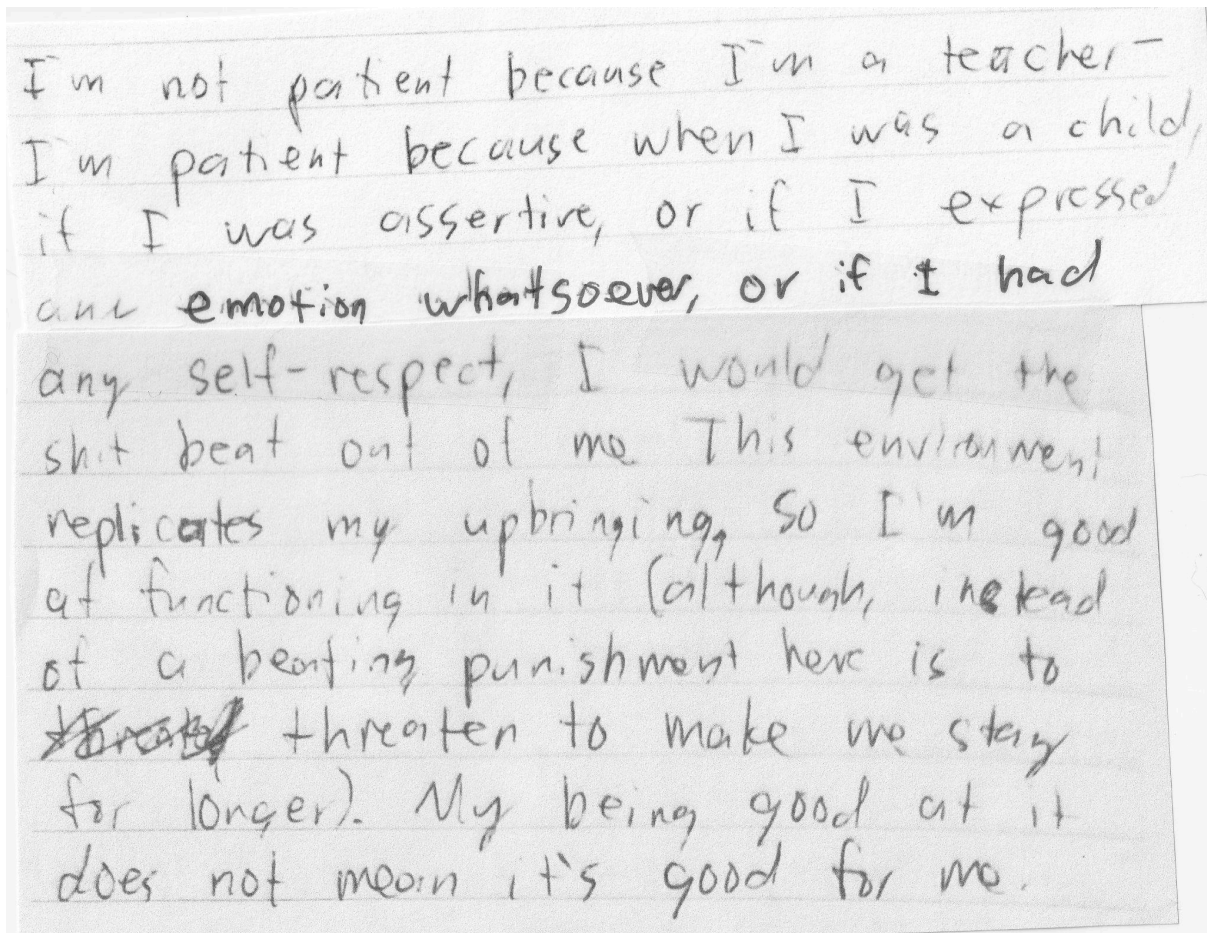 I'm not patient because I'm a teacher-
I'm patient because when I was a child,
if I was assertive, or if I expressed
any emotion whatsoever, or if I had
any self-respect, I would get the
shit beat out of me This environment
replicates my upbringing, so I'm good
at functioning in it (although, instead
of a beating punishment here is to
threaten to make me stay
for longer). My being good at it
does not mean it's good for me.